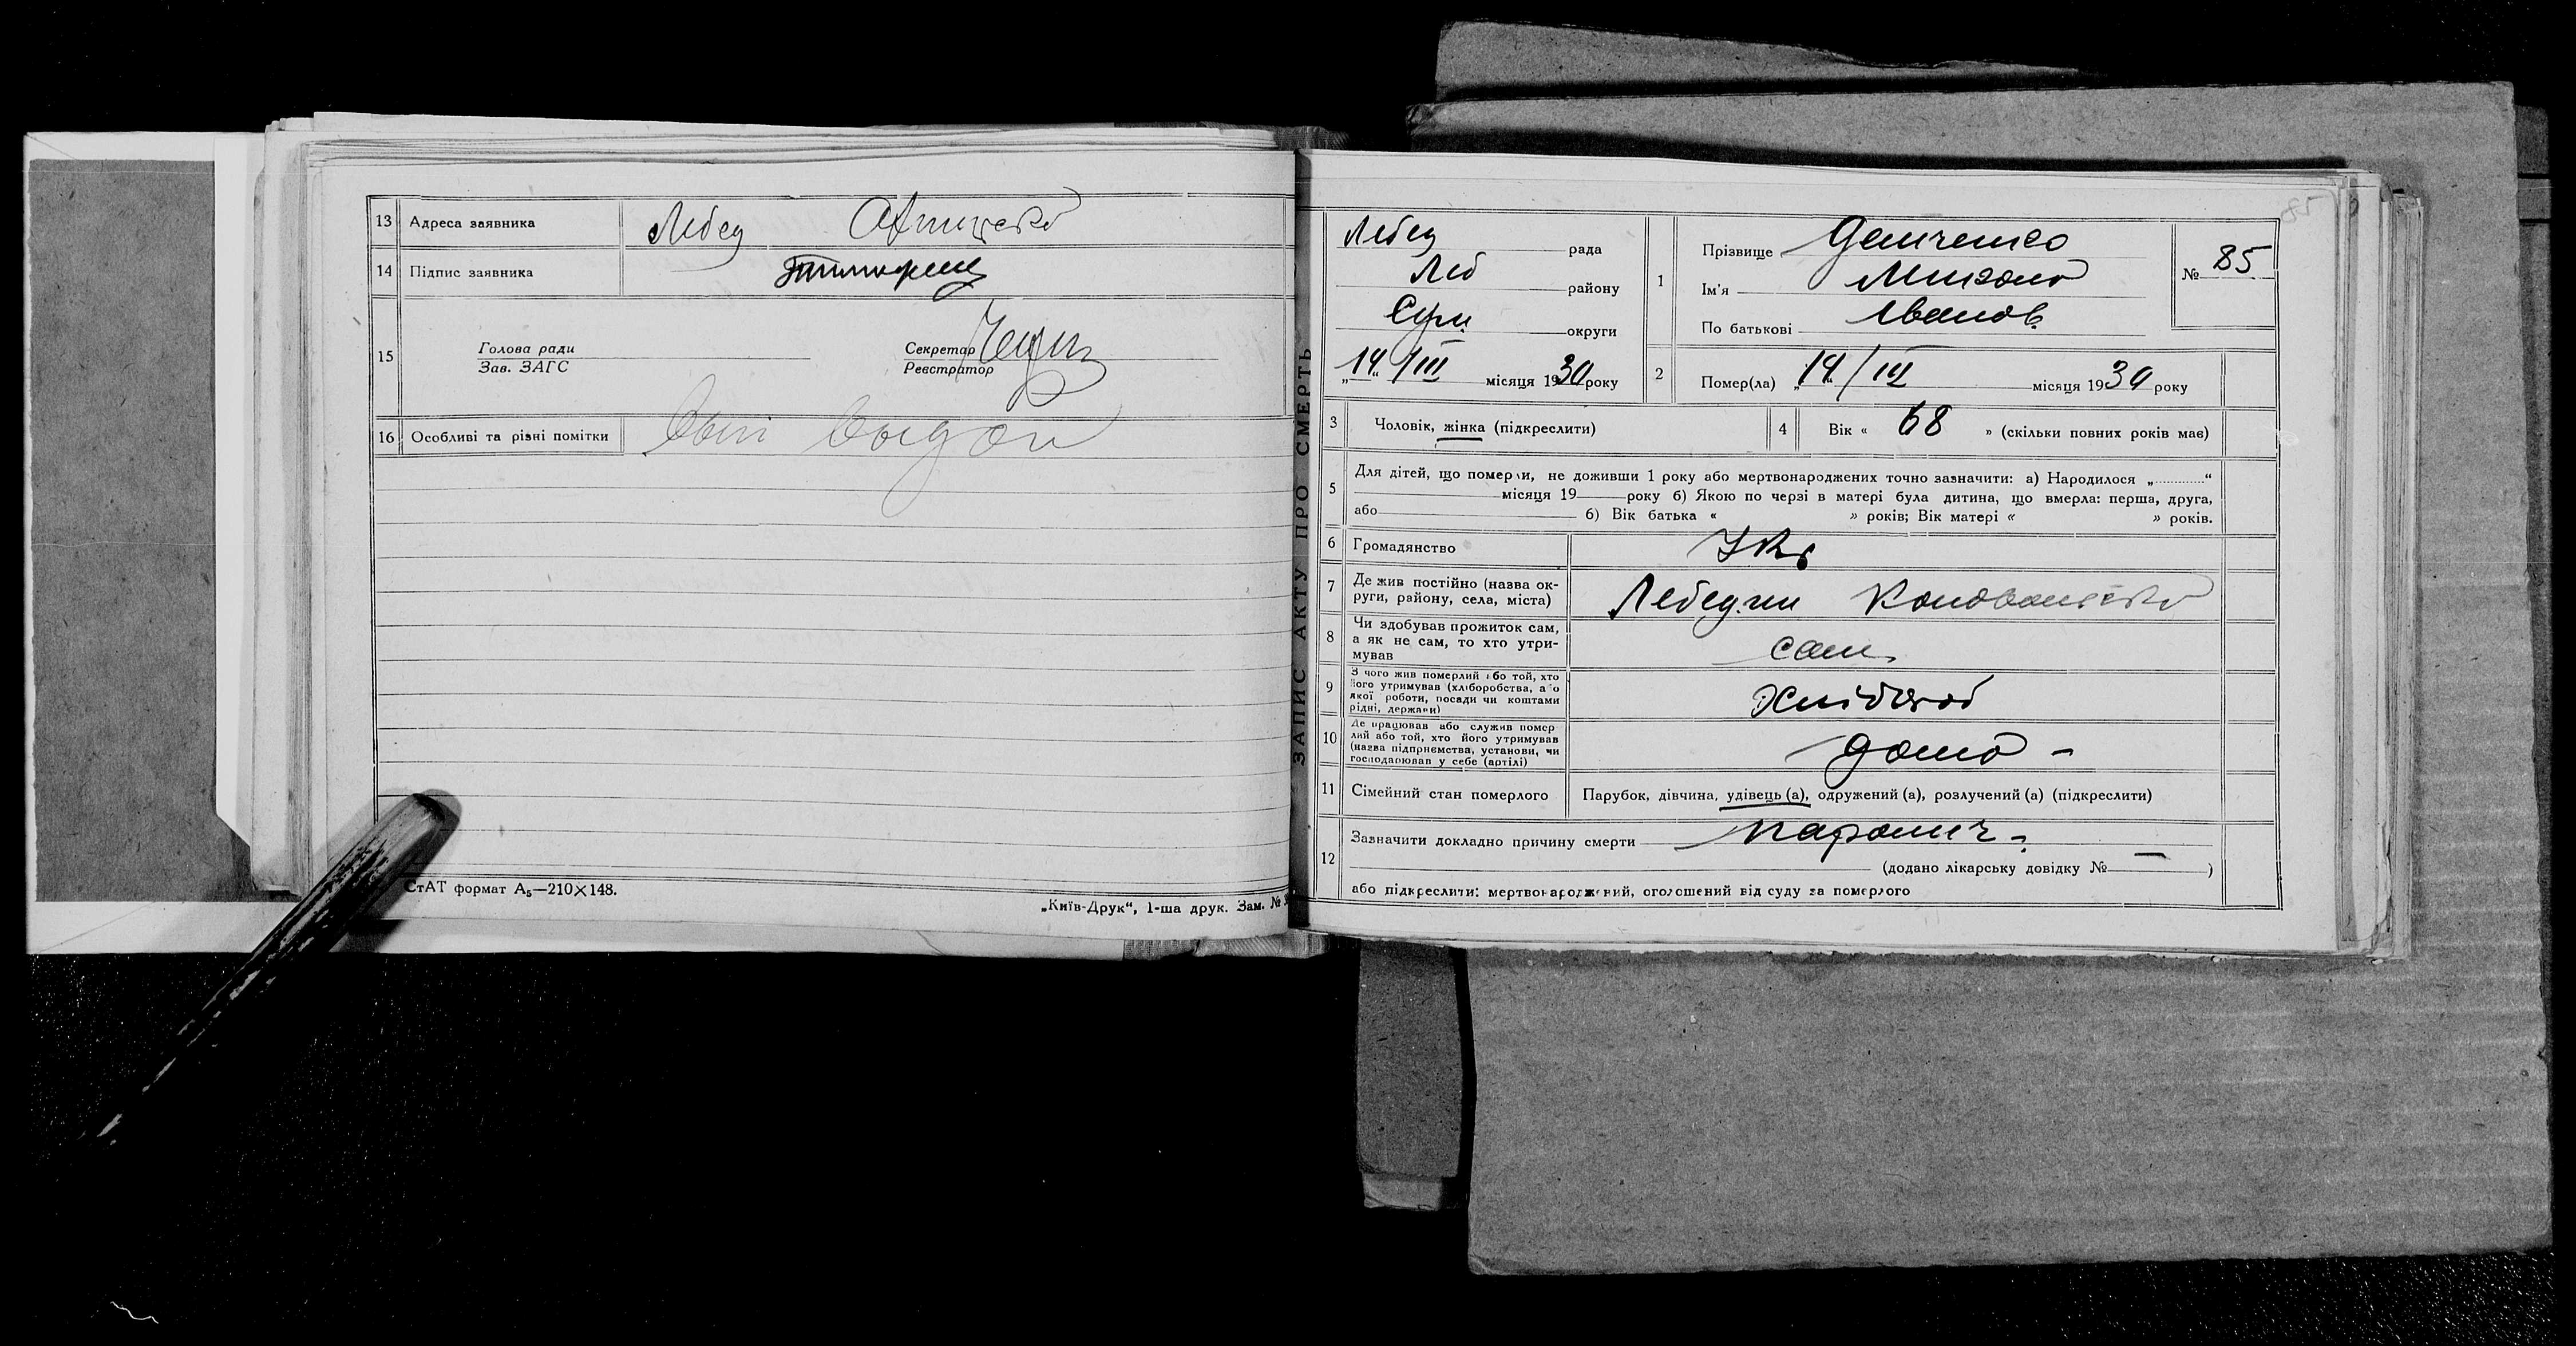 13 Адреса заявника Лебед
14 Підпис заявника
15 Голова ради Секретар
Зав. ЗАГС Реєстратор
16 Особливі та різні помітки
СтАТ формат А₅—210×148.
„Київ-Друк“, 1-ша друк. Зам. №
ЗАПИС АКТУ ПРО СМЕРТЬ
Лебед рада
Леб району
Сум округи
„14“ /III місяця 1930 року
1 Прізвище Демченко
Ім'я
По батькові Иванов.
№ 85
2 Помер(ла) „14“ / III місяця 1930 року
3 Чоловік, жінка (підкреслити)
4 Вік « 68 » (скільки повних років мав)
5 Для дітей, що померли, не доживши 1 року або мертвонароджених точно зазначити: а) Народилося „............“
місяця 19 року б) Якою по черзі в матері була дитина, що вмерла: перша, друга,
або б) Вік батька « » років; Вік матері « » років.
6 Громадянство Укр
7 Де жив постійно (назва ок-
руги, району, села, міста) Лебедин
8 Чи здобував прожиток сам,
а як не сам, то хто утри-
мував сам
9 З чого жив померлий або той, хто
його утримував (хліборобства, або
якої роботи, посади чи коштами
рідні, держави) Хлібороб
10 Де працював або служив помер
лий або той, хто його утримував
(назва підприємства, установи, чи
господарював у себе (артілі) дома -
11 Сімейний стан померлого Парубок, дівчина, удівець (а), одружений (а), розлучений (а) (підкреслити)
12 Зазначити докладно причину смерти паралич -
(додано лікарську довідку № — )
або підкреслити: мертвонароджений, оголошений від суду за померлого